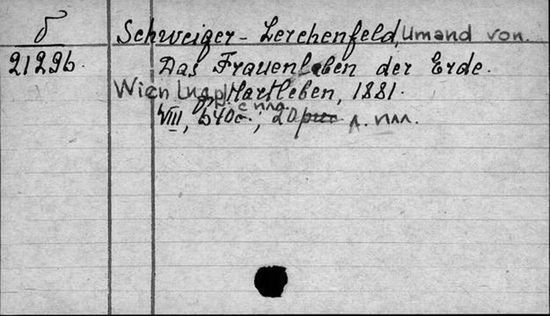 δ Schweiger-Lerchenfeld, Umand von.
21296. Das Frauenleben der Erde.
Wien Hartleben, 1881.
VIII, 640 c.; с илл.
20 л. илл.